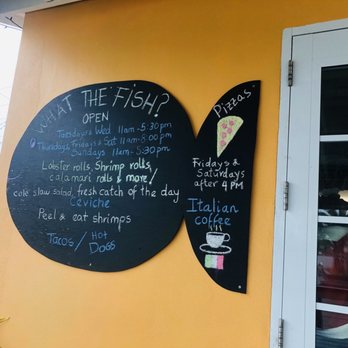 WHAT THE FISH?
OPEN
Tuesdays & Wed 11am-5:30pm
Thursdays Fridays & Sat 11am-8:00pm
Sundays 11am-5:30pm
Lobster rolls, Shrimp rolls,
calamari rolls & more!
cole slaw salad, fresh catch of the day
Ceviche
Peel & eat shrimps
Tacos/ Hot
Dogs
Pizzas
Fridays &
Saturdays
after 4 PM
Italian
coffee